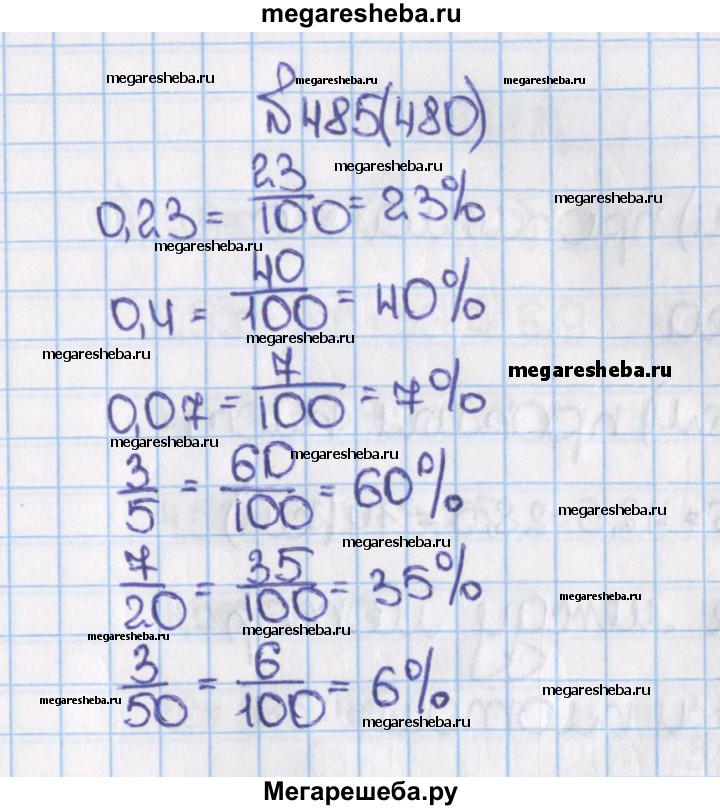 megaresheba.ru
megaresheba.ru megaresheba.ru megaresheba.ru
№ 485(480)
megaresheba.ru
megaresheba.ru
0,23 = 23/100 = 23%
megaresheba.ru
0,4 = 40/100 = 40%
megaresheba.ru
megaresheba.ru
0,07 = 7/100 = 7%
megaresheba.ru
megaresheba.ru
3/5 = 60/100 = 60%
megaresheba.ru
megaresheba.ru
7/20 = 35/100 = 35%
megaresheba.ru
megaresheba.ru megaresheba.ru
megaresheba.ru
3/50 = 6/100 = 6%
megaresheba.ru megaresheba.ru
megaresheba.ru
Мегарешеба.ру